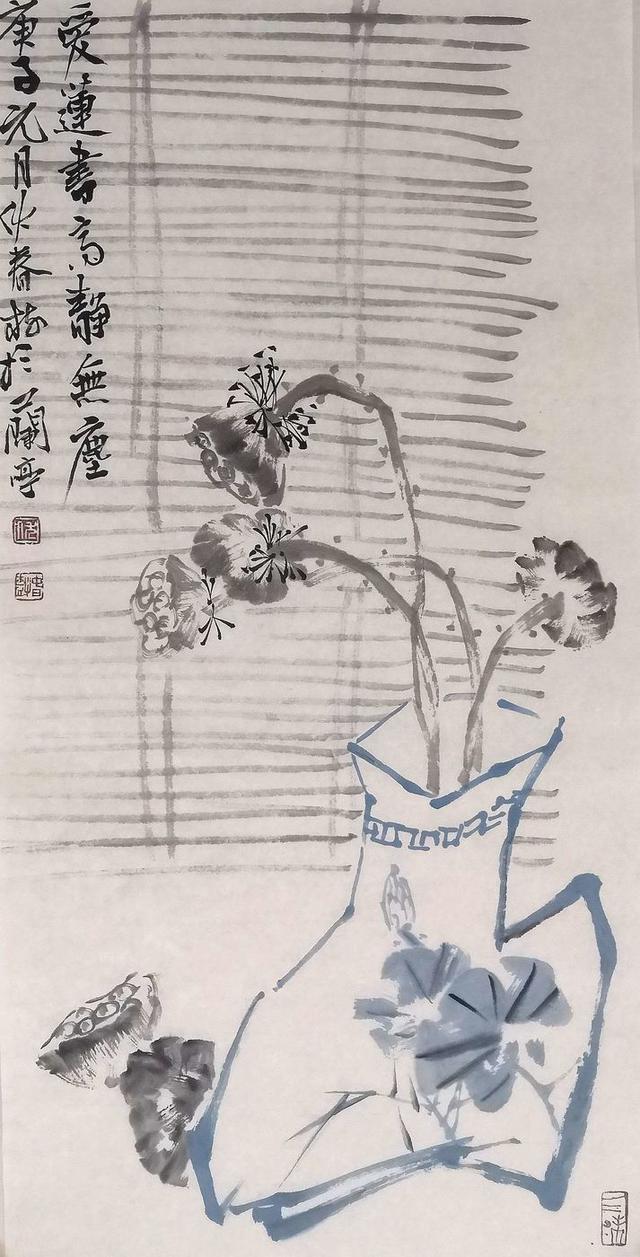 愛蓮書高靜無塵
庚子元月春梅於蘭亭